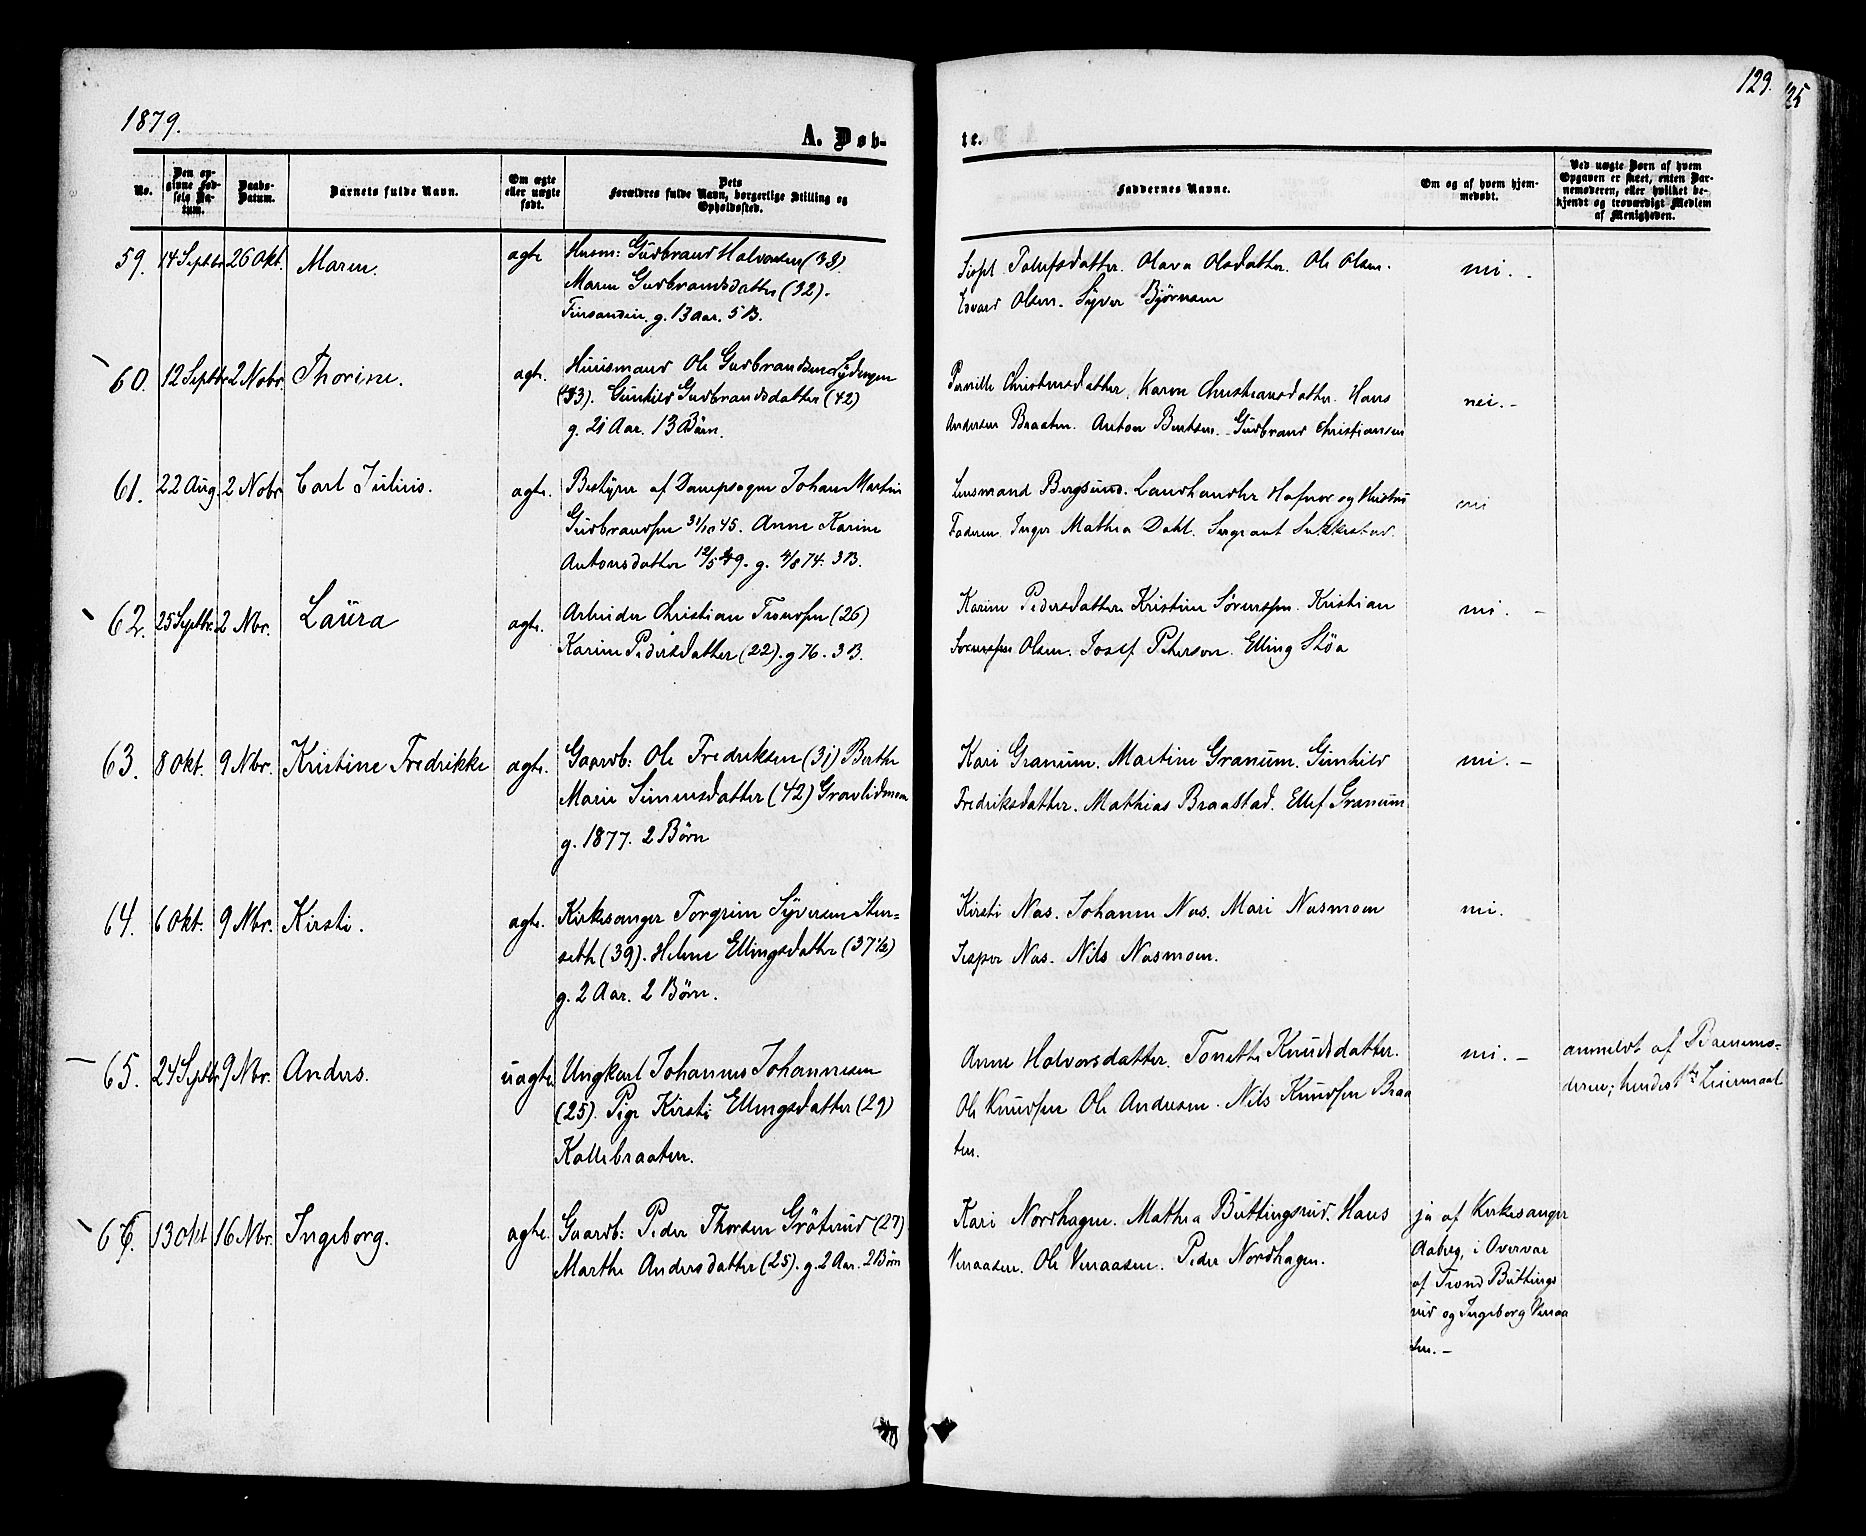 1879.
A. Døb-
te.
123.
125
No.
Den op-
givne Fød-
sels Da-
tum.
Daabs-
Datum.
Barnets fulde Navn.
Om ægte
eller uægte
født.
Dets
Forældres fulde Navn, borgerlige Stilling og
Opholdssted.
Faddernes Navne.
Om og af hvem hjem-
medøbt.
Ved uægte Børn af hvem
Opgaven er skeet, enten Bar-
nemoderen, eller hvilket be-
kjendt og troværdigt Medlem
af Menigheden.
59. 14 Septbr 26 Okt. Maren. ægte Husm: Gudbrand Halvorsen (38).
Maren Gudbrandsdatter (32).
g. 13 Aar. 5 B.
Tolefsdatter. Olava Olsdatter. Ole Olsen.
Edvard Olsen. Syver Bjørnsen
nei.
60. 12 Septbr 2 Novbr. Thorine. ægte. Huusmand Ole Gudbrandsen
(43). Gunhild Gudbrandsdatter (42)
g. 21 Aar. 13 Børn.
Pernille Christensdatter, Karen Christiansdatter. Hans
Andersen Braaten. Anton Berntsen. Gudbrand Christiansen
nei.-
61. 22 Aug. 2 Novbr Carl Julius. ægte. Bestyrer af Dampsagen Johan Martin
Gudbrandsen 31/10 45. Anne Karine
Antonsdatter 12/5 49. g. 4/8 74. 3 B.
Lensmand Bergsund. Landhandler Hafnor og Hustru
Faderen. Inger Mathea Dahl. Sergeant
nei
62. 25 Septbr. 2 Nbr. Laura ægte. Arbeider Christian Trondsen (26)
Karine Pedersdatter (22). g 76. 3 B.
Karine Pedersdatter Kristine Sørenssen. Kristian
Sørenssen Olsen. Josef Peterson. Elling Støa
nei. -
63. 8 Okt. 9 Nbr. Kristine Fredrikke ægte. Gaardb: Ole Fredriksen (31) Berthe
Marie Simensdatter (42) Gravlidmoen
g. 1877. 2 Børn
Kari Granum. Martine Granum. Gunhild
Fredriksdatter. Mathias Braastad. Ellef Granum
nei. -
64. 6 Okt. 9 Nbr. Kirsti. ægte. Kirkesanger Torgrim Syversen Sten-
seth (39). Helene Ellingsdatter (37½)
g. 2 Aar. 2 Børn.
Kirsti Næs. Johanne Næs. Mari Næsmoen
Jesper Næs. Nils Næsmoen.
nei.
65. 24 Septbr 9 Nbr. Anders. uægte Ungkarl Johannes Johannesen
(25). Pige Kirsti Ellingsdatter (29)
Kollebraaten.
Anne Halvorsdatter. Tonette Knudsdatter.
Ole Knudsen Ole Andersen. Nils Knudsen Braa
ten.
nei. -
anmeldt af Barnemo-
deren; hendes 1ste Leiermaal
66. 13 Okt 16 Nbr. Ingeborg. ægte. Gaardb: Peder Thorsen Grøterud (27)
Marthe Andersdatter (25). g. 2 Aar. 2 Børn
Kari Nordhagen. Mathea Buttingsrud. Hans
Veraasen. Ole Veraasen. Peder Nordhagen.
ja af Kirkesanger
Aaberg, i Overvær
af Trond Buttings
rud og Ingeborg Veraa
sen. -